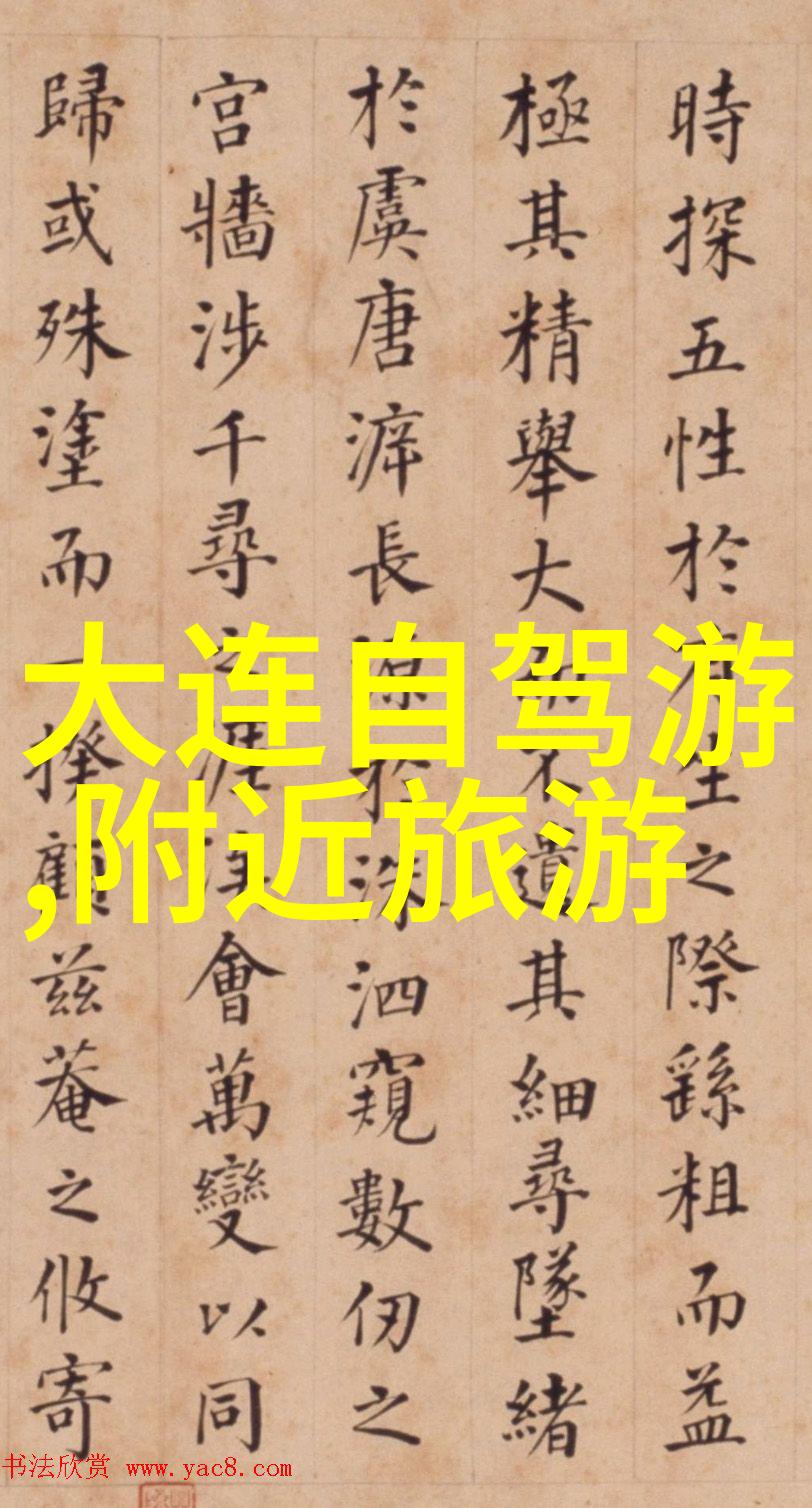 時探五性於生之際繇粗而益
極其精舉大不遺其細尋墜緒
於虞唐長源於洙泗窺數仞之
宮牆涉千尋之涯會萬變以同
歸或殊塗而一揆顧茲菴之攸寄
大连自驾游
,附近旅游
书法欣赏 www.yac8.com